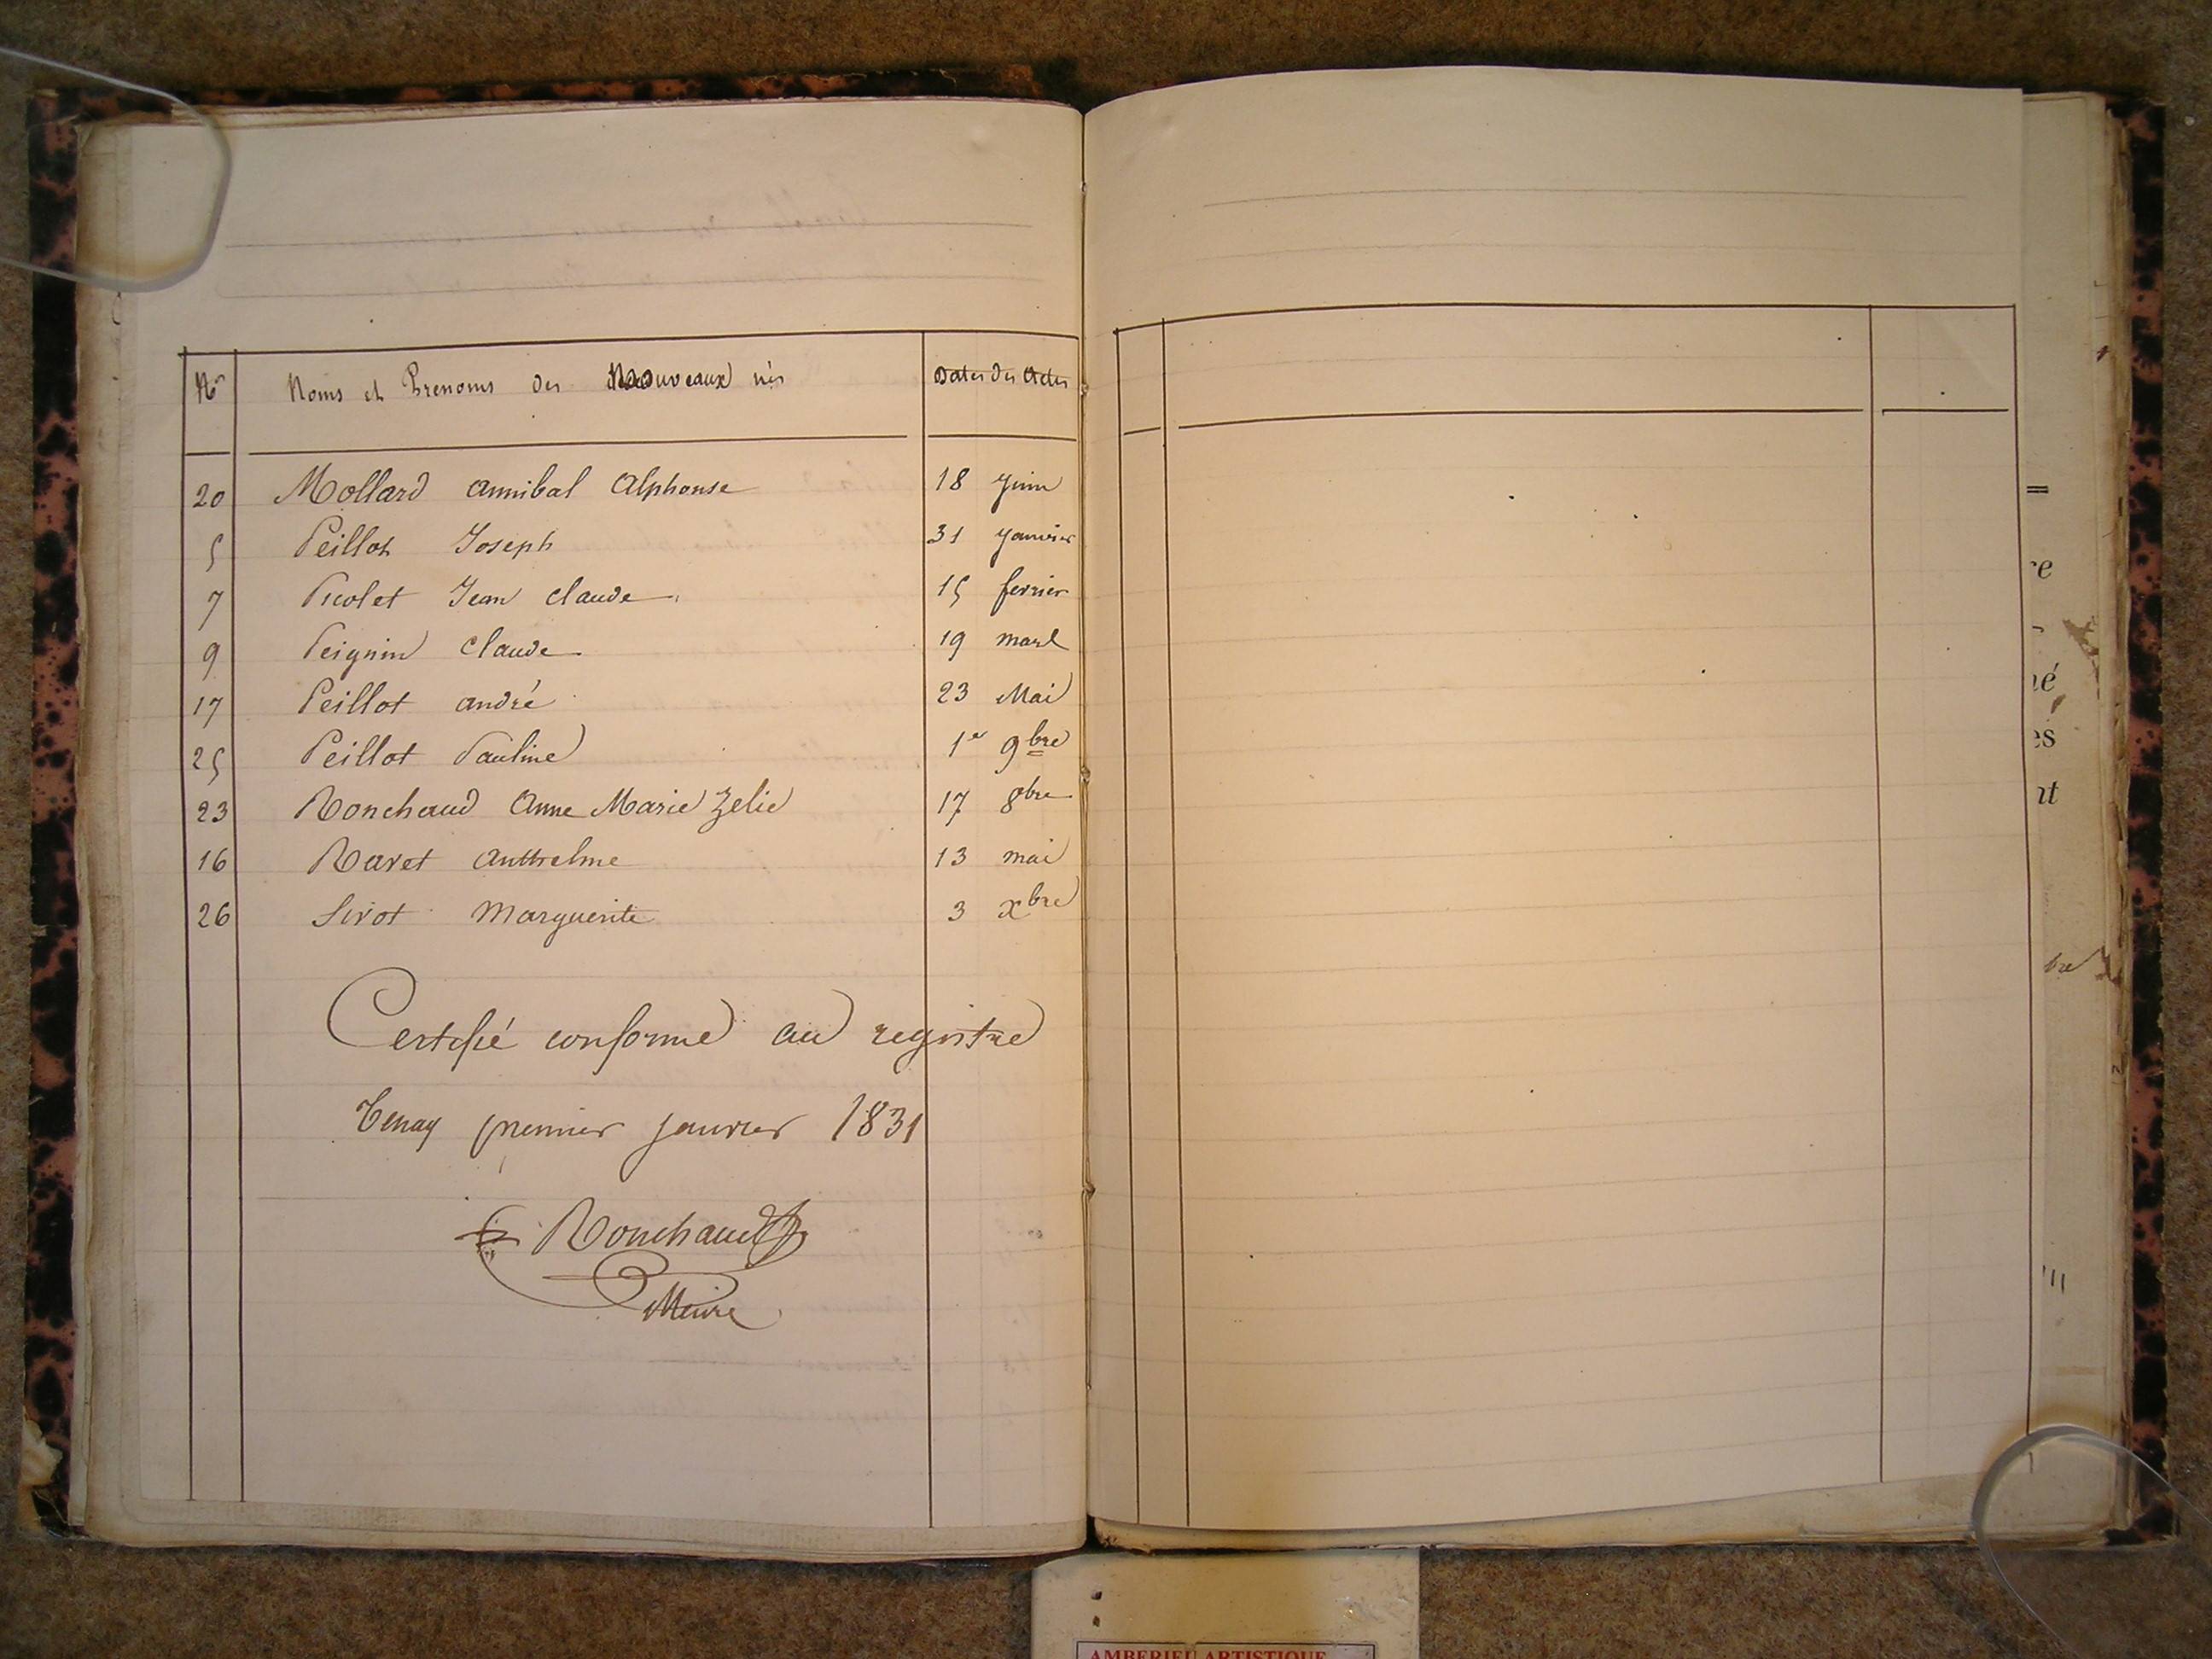 Nos Noms et Prenoms des Nouveaux nés Dates des Actes
20 Mollard Annibal Alphonse 18 Juin
5 Peillot Joseph 31 Janvier
7 Picolet Jean Claude 15 fevrier
9 Peignin Claude 19 mars
17 Peillot André 23 Mai
25 Peillot Pauline 1er 9bre
23 Ronchaud Anne Marie Zelie 17 8bre
16 Ravet Anthelme 13 mai
26 Sivot Marguerite 3 xbre
Certifié conforme au registre
Tenay premier janvier 1831
Ronchaud
Maire
re
né
és
nt
bre
AMBERIEU ARTISTIQUE